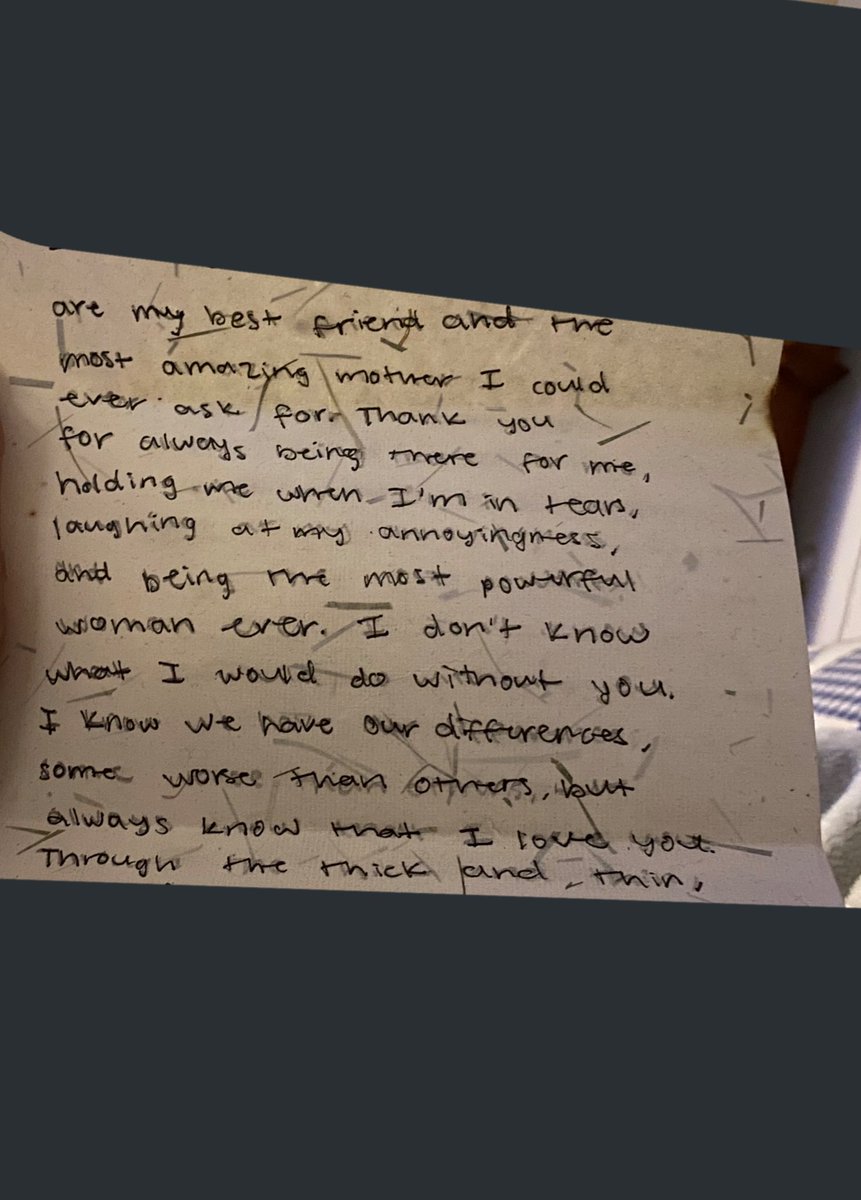 are my best friend and the
most amazing mother I could
ever ask for. Thank you
for always being there for me,
holding me when I'm in tears,
laughing at my annoyingness,
and being the most powerful
woman ever. I don't know
what I would do without you.
I know we have our differences,
some worse than others, but
always know that I love you.
Through the thick and thin,